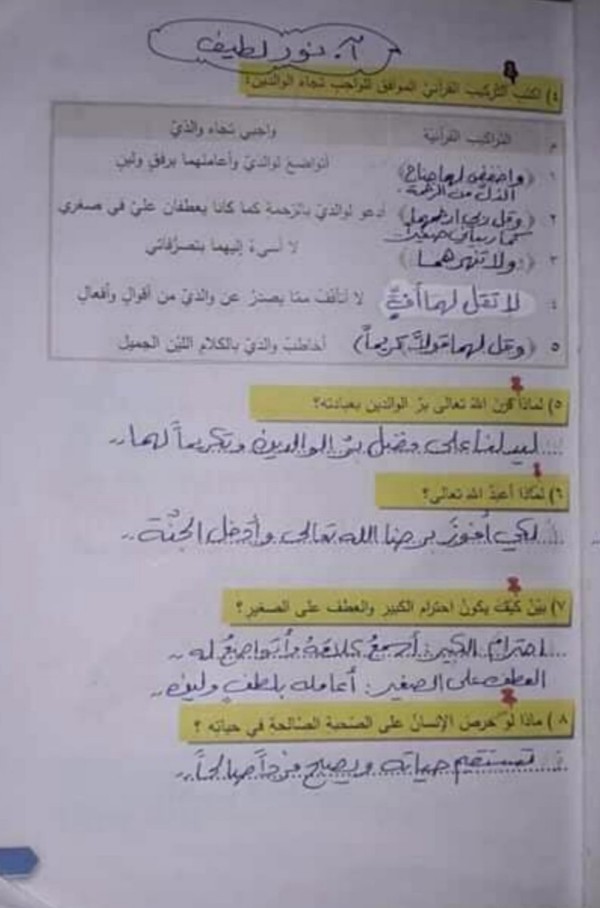 آ. نور لطيف
٤) اكتب التركيب القرآنيّ الموافق للواجب تجاه الوالدين:
م التراكيب القرآنية واجبي تجاه والديّ
١ (واخفض لهما جناح الذل من الرحمة) أتواضع لوالديّ وأعاملهما برفقٍ ولينٍ
٢ (وقل ربي ارحمهما كما ربياني صغيرا) أدعو لوالديّ بالرحمة كما كانا يعطفان عليّ في صغري
٣ (ولا تنهرهما) لا أسيءُ إليهما بتصرُّفاتي
٤ لا تقل لهما أفٍّ لا أتأفّفُ ممّا يصدرُ عن والديّ من أقوالٍ وأفعالٍ
٥ (وقل لهما قولاً كريماً) أخاطبُ والديّ بالكلامِ الليّنِ الجميل
٥) لماذا قرنَ اللهُ تعالى برّ الوالدين بعبادته؟
ليدلنا على فضل برّ الوالدين وتكريماً لهما..
٦) لماذا أعبدُ اللهَ تعالى؟
لكي أفوزَ برضا الله تعالى وأدخل الجنّة..
٧) بيّن كيفَ يكونُ احترام الكبير والعطف على الصغير؟
احترام الكبير: أسمعُ كلامَهُ وأتواضعُ له..
العطف على الصغير: أعامله بلطفٍ ولين..
٨) ماذا لو حرصَ الإنسانُ على الصّحبة الصّالحةِ في حياتِه؟
تستقيم حياته ويصبح فرداً صالحاً..